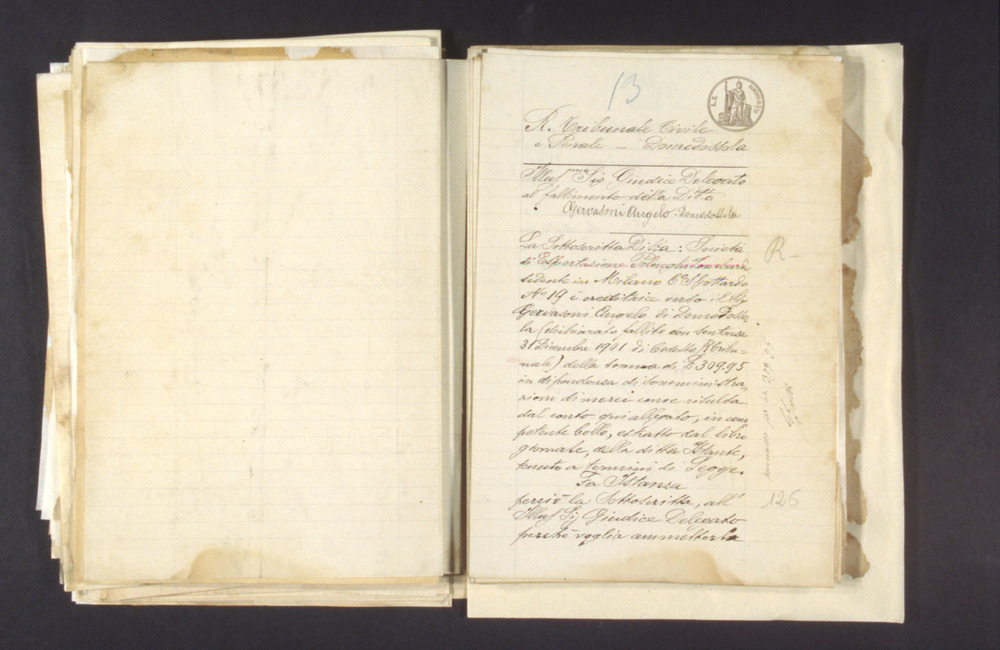 13
R. Tribunale Civile
e Penale – Domodossola
Illus.mo Sig Giudice Delegato
al fallimento della Ditta
Gervasoni Angelo - Domodossola
La Sottoscritta Ditta: Società
di Esportazione Polenghi Lombardo
sedente in Milano C. S. Gottardo
No 19 è creditrice verso il Sig
Gervasoni Angelo di Domodosso-
la (dichiarato fallito con sentenza
31 Dicembre 1901 di Codesto R Tribu-
nale) della somma di £ 309.95
in dipendenza di somministra-
zioni di merci come risulta
dal conto qui allegato, in com
petente bollo, estratto dal libro
giornale, della ditta Istante,
tenuto a termini di Legge.
Fa Istanza
perciò la Sottoscritta, all'
Illus Sig Giudice Delegato
perchè voglia ammetterla
R-
126